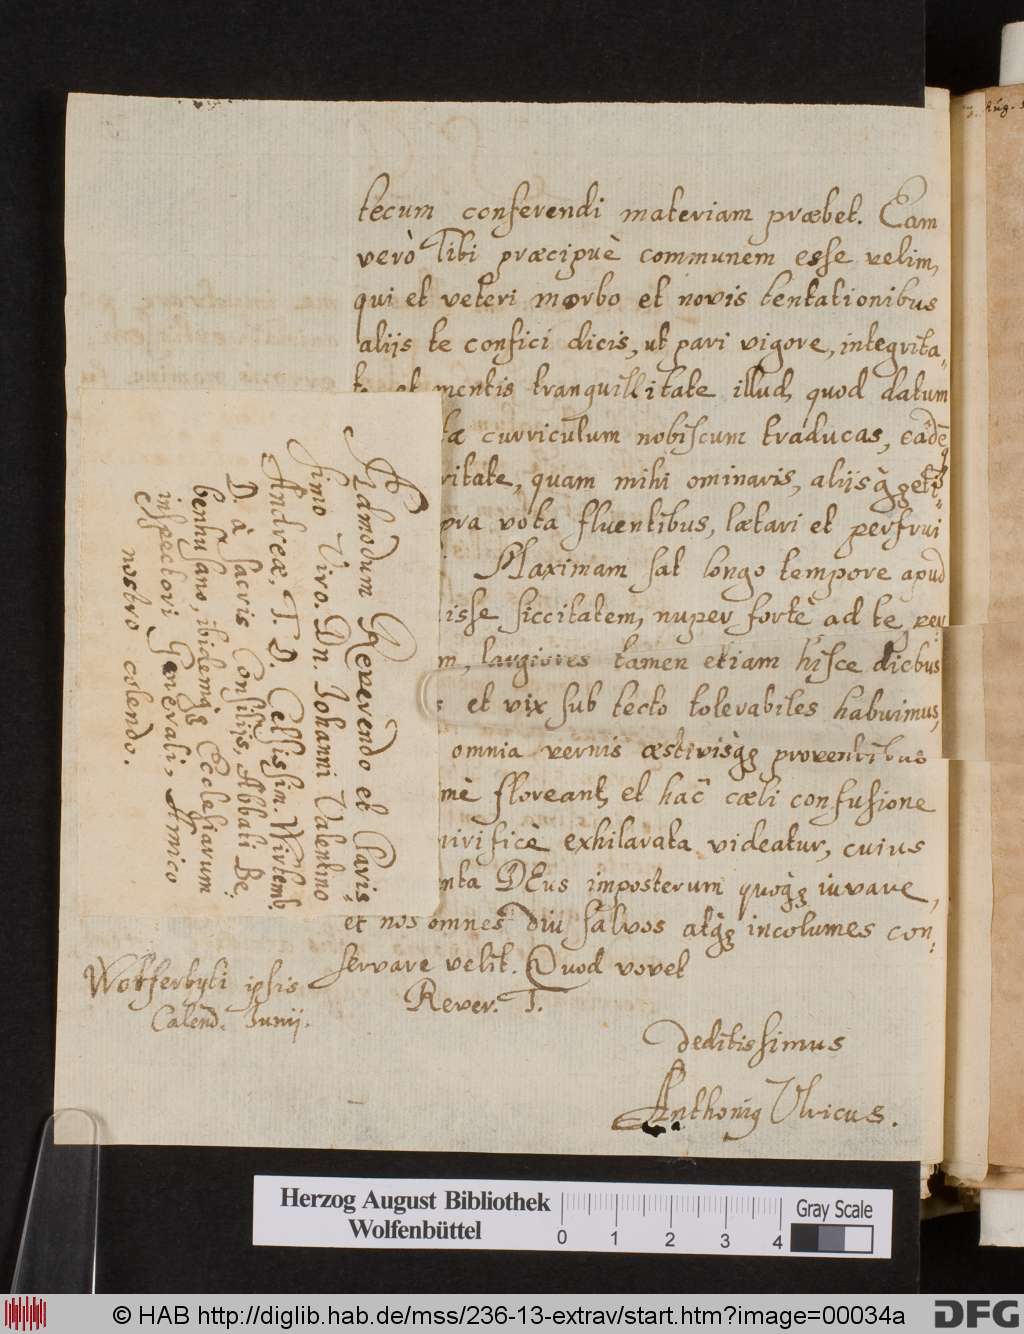 tecum conferendi materiam præbet. Eam
verò Tibi præcipuè communem esse velim,
qui et veteri morbo et novis tentationibus
aliis te confici dicis, ut pari vigore, integrita-
mentis tranquillitate illud, quod datum
tæ curriculum nobiscum traducas, eâdē
ritate, quam mihi ominaris, aliisq́ꝫ
pra vota fluentibus, lætari et perfrui
Maximam sat longo tempore apud
isse siccitatem, nuper fortè ad te per
m, largiores tamen etiam hisce diebus
et vix sub tecto tolerabiles habuimus,
omnia vernis æstivisq́ꝫ proventibus
mè floreant, et hac cœli confusione
mirificè exhilarata videatur, cuius
nta DEus imposterum quoq́ꝫ iuvare,
et nos omnes diu salvos atq́ꝫ incolumes con-
servare velit. Quod vovet
Rever. T.
Wolferbyti ipsis
Calend. Junij.
deditissimus
Anthoniꝰ Ulricus.
Admodum Reverendo et Claris-
simo Viro. Dn. Johanni Valentino
Andreæ, T. D. Celsissim. Wirtemb.
D. à sacris Consilijs, Abbati Be-
benhusano, ibidemq́ꝫ Ecclesiarum
inspectori Generali, Amico
nostro colendo.
Aug.
Herzog August Bibliothek
Wolfenbüttel
0 1 2 3 4
Gray Scale
© HAB http://diglib.hab.de/mss/236-13-extrav/start.htm?image=00034a
DFG